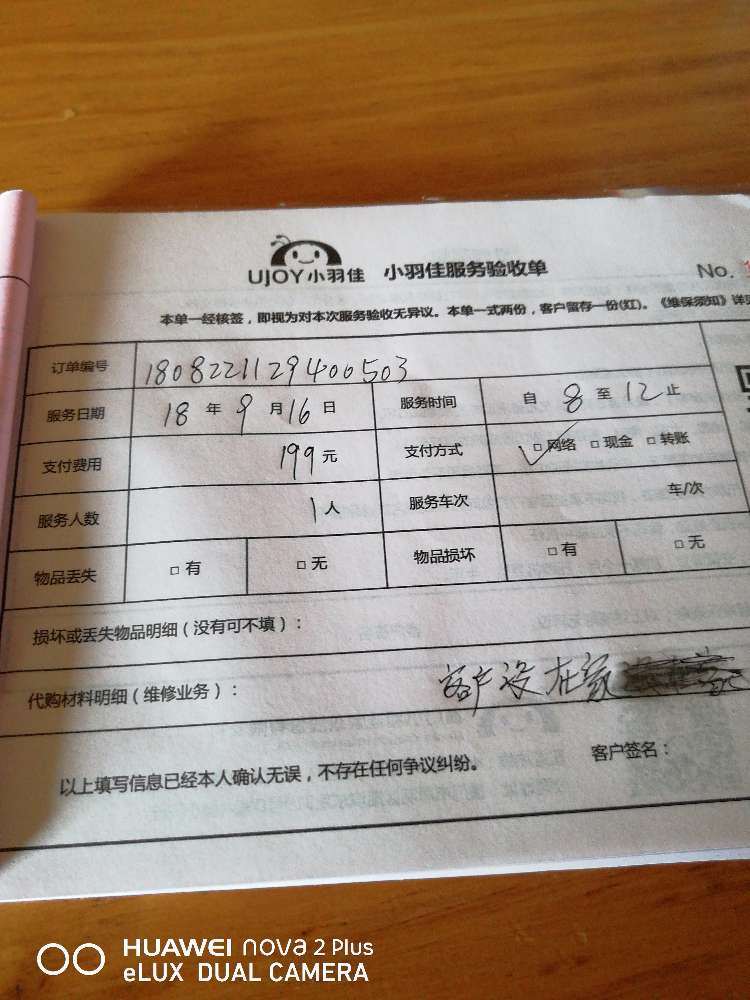 UJOY小羽佳 小羽佳服务验收单 No.
本单一经核签，即视为对本次服务验收无异议。本单一式两份，客户留存一份(红)。《维保须知》详见
订单编号 1808221129400503
服务日期 18 年 9 月 16 日 服务时间 自 8 至 12 止
支付费用 199 元 支付方式 □ 网络 □ 现金 □ 转账
服务人数 1 人 服务车次 车/次
物品丢失 □ 有 □ 无 物品损坏 □ 有 □ 无
损坏或丢失物品明细（没有可不填）：
代购材料明细（维修业务）： 客户没在家
以上填写信息已经本人确认无误，不存在任何争议纠纷。 客户签名：
HUAWEI nova 2 Plus
eLUX DUAL CAMERA